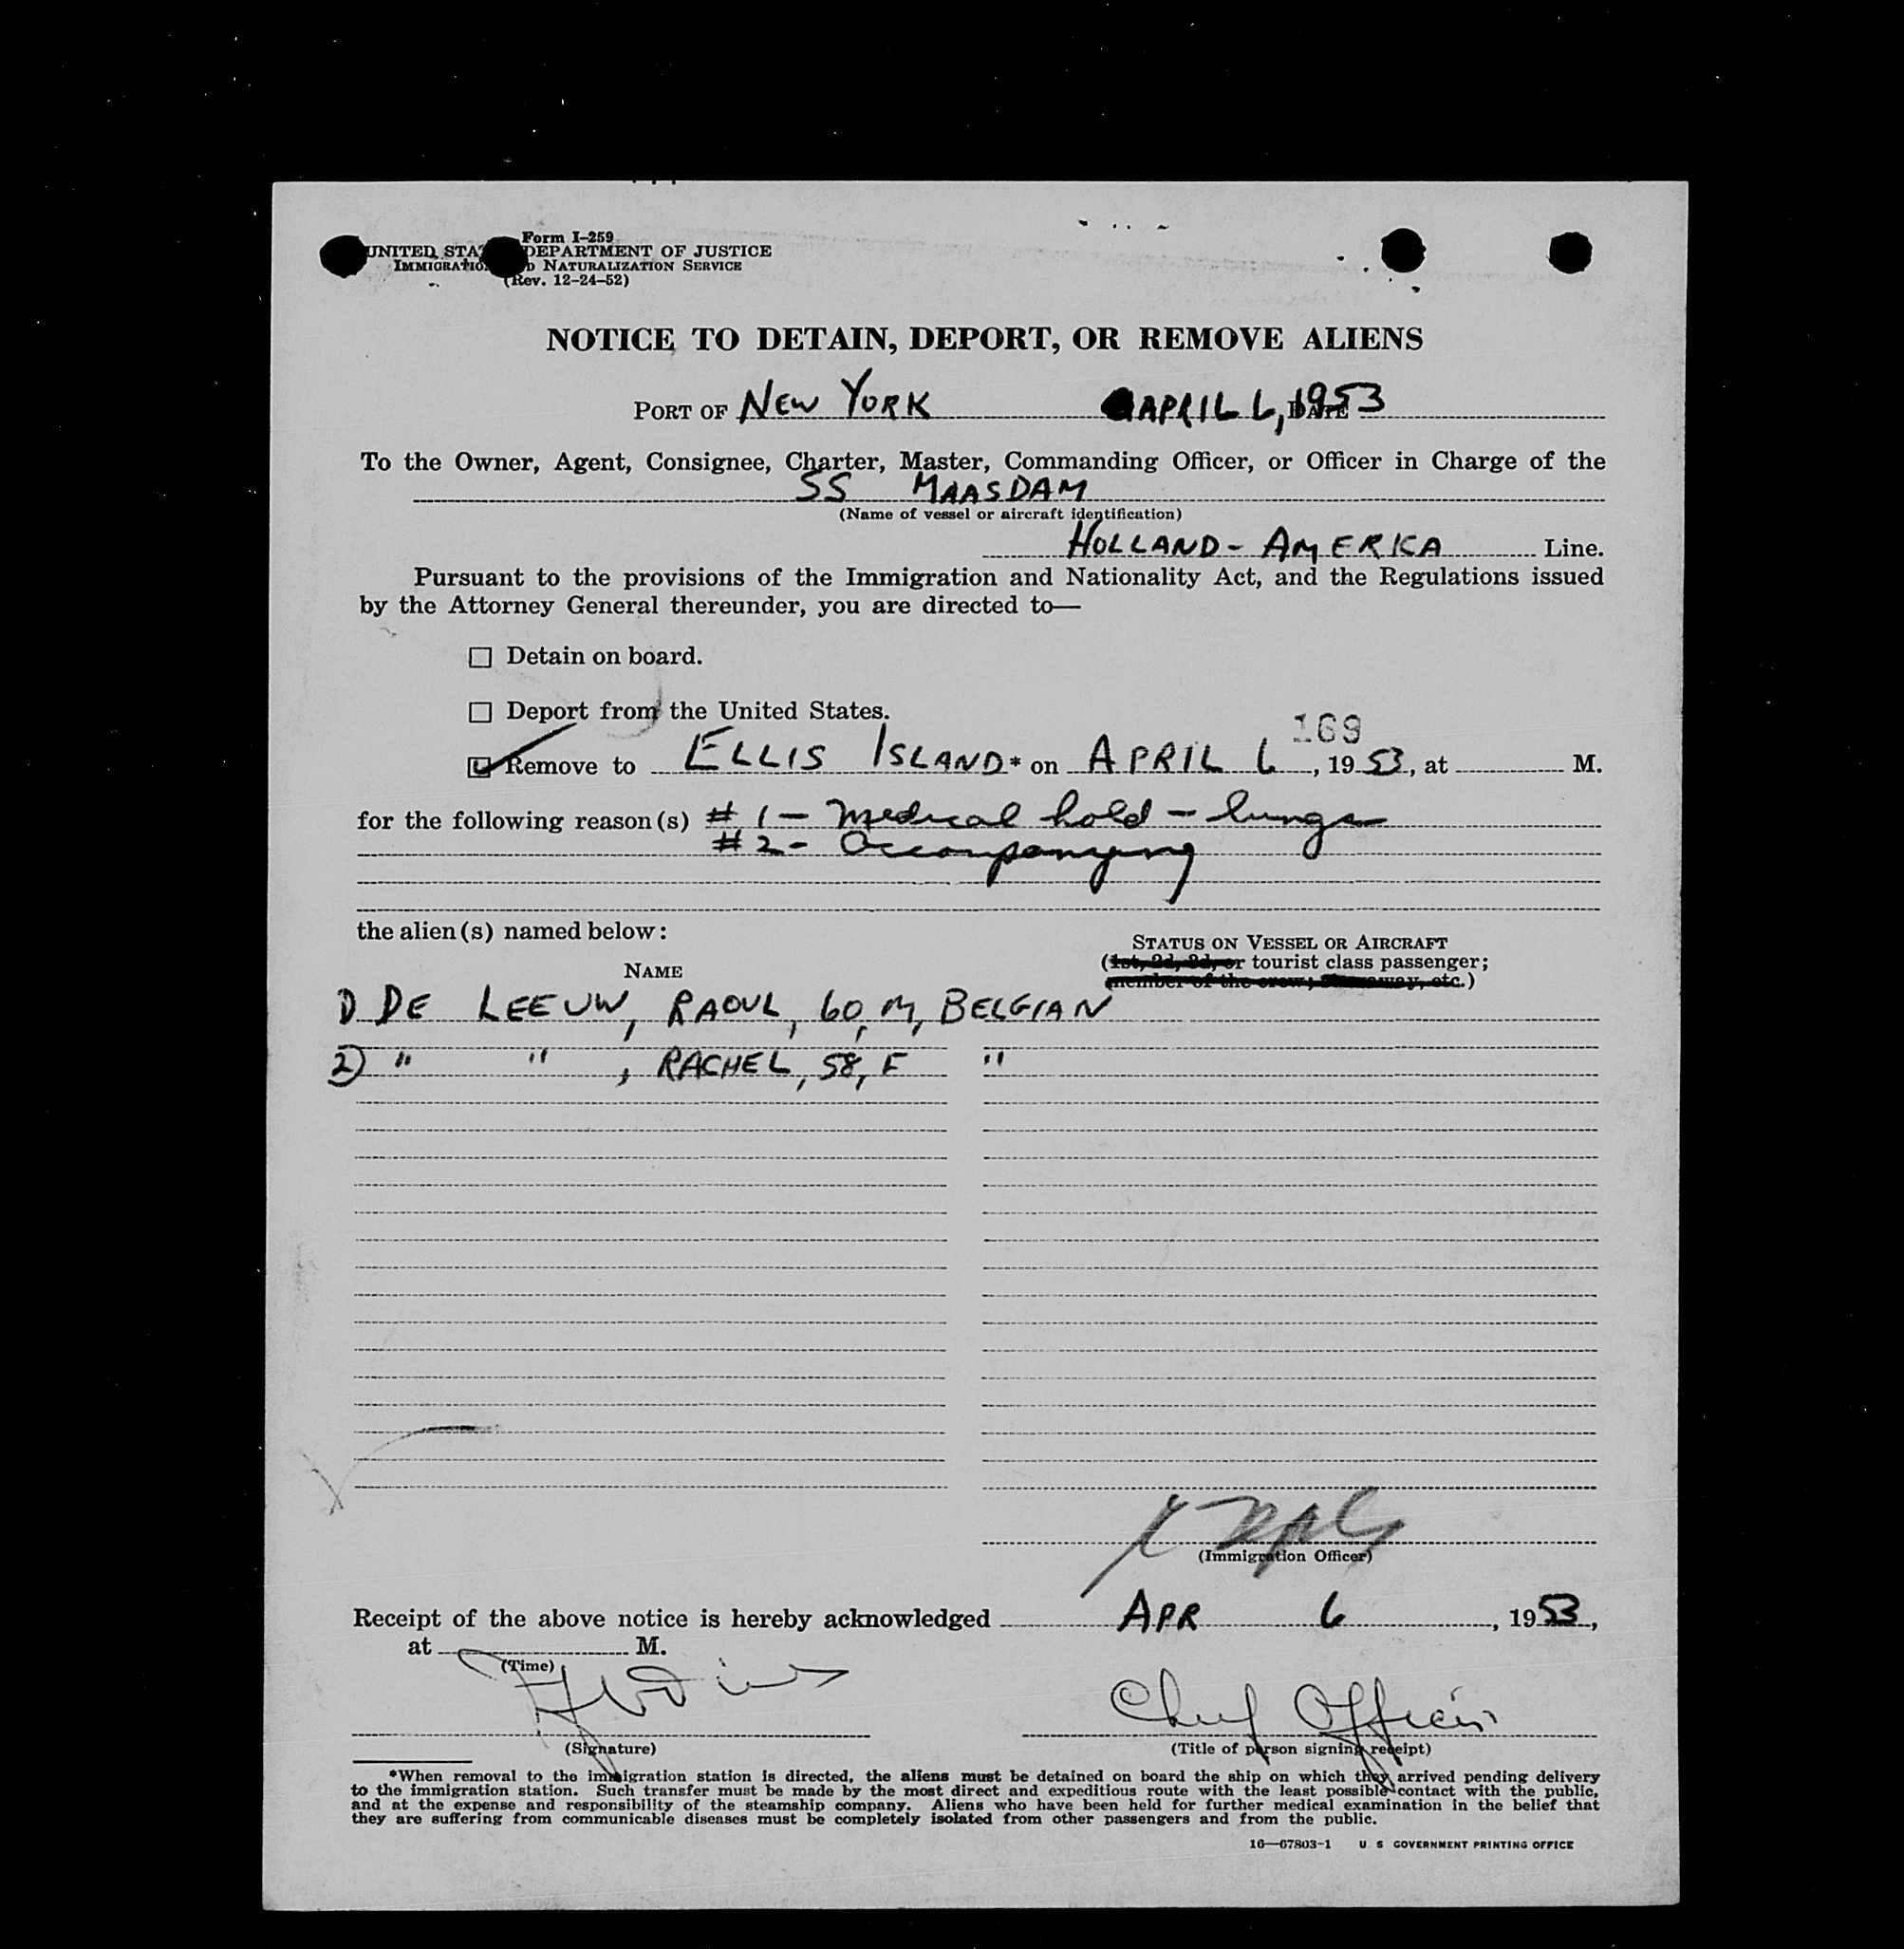 Form I-259
UNITED STA DEPARTMENT OF JUSTICE
IMMIGRATIO D NATURALIZATION SERVICE
(Rev. 12-24-52)
NOTICE TO DETAIN, DEPORT, OR REMOVE ALIENS
PORT OF NEW YORK APRIL 6, 1953 DATE
To the Owner, Agent, Consignee, Charter, Master, Commanding Officer, or Officer in Charge of the
SS MAASDAM
(Name of vessel or aircraft identification)
HOLLAND-AMERICA Line.
Pursuant to the provisions of the Immigration and Nationality Act, and the Regulations issued
by the Attorney General thereunder, you are directed to—
☐ Detain on board.
☐ Deport from the United States.
169
☑ Remove to ELLIS ISLAND* on APRIL 6, 1953, at M.
for the following reason(s) # 1 - Medical hold - lungs
# 2 - Accompanying
the alien(s) named below:
STATUS ON VESSEL OR AIRCRAFT
NAME
(1st, 2d, 3d, or tourist class passenger;
member of the crew; Stowaway, etc.)
1) DE LEEUW, RAOUL, 60, M, BELGIAN
2) " " , RACHEL, 58, F "
(Immigration Officer)
Receipt of the above notice is hereby acknowledged APR 6, 1953,
at M.
(Time)
Chief Officer
(Signature) (Title of person signing receipt)
*When removal to the immigration station is directed, the aliens must be detained on board the ship on which they arrived pending delivery
to the immigration station. Such transfer must be made by the most direct and expeditious route with the least possible contact with the public,
and at the expense and responsibility of the steamship company. Aliens who have been held for further medical examination in the belief that
they are suffering from communicable diseases must be completely isolated from other passengers and from the public.
16—67803-1 U S GOVERNMENT PRINTING OFFICE